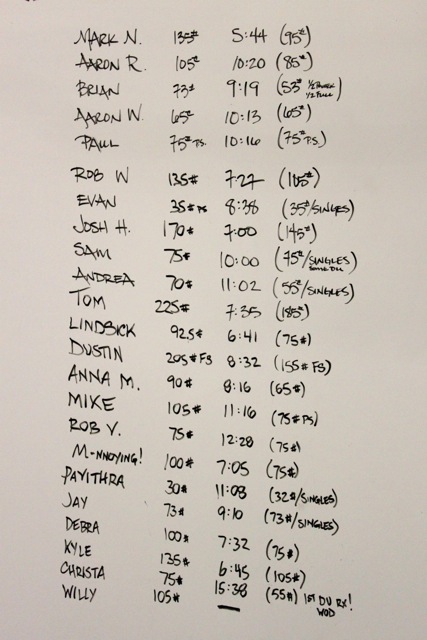 MARK N. 135# 5:44 (95#)
AARON R. 105# 10:20 (85#)
BRIAN 73# 9:19 (53# 1/2 POWER 1/2 FULL)
AARON W. 65# 10:13 (65#)
PAUL 75# PS. 10:16 (75# PS.)
ROB W 135# 7:27 (105#)
EVAN 35# PS 8:38 (35#/SINGLES)
JOSH H. 170# 7:00 (145#)
SAM 75# 10:00 (75#/SINGLES SOME DU)
ANDREA 70# 11:02 (55#/SINGLES)
TOM 225# 7:35 (185#)
LINDSICK 92.5# 6:41 (75#)
DUSTIN 205# FS 8:32 (155# FS)
ANNA M. 90# 8:16 (65#)
MIKE 105# 11:16 (75# PS)
ROB V. 75# 12:28 (75#)
M-NNOYING! 100# 7:05 (75#)
PAVITHRA 30# 11:08 (32#/SINGLES)
JAY 73# 9:10 (73#/SINGLES)
DEBRA 100# 7:32 (75#)
KYLE 135# 6:45 (105#)
CHRISTA 75# 15:38 (55#) 1ST DU RX! WOD
WILLY 105# —